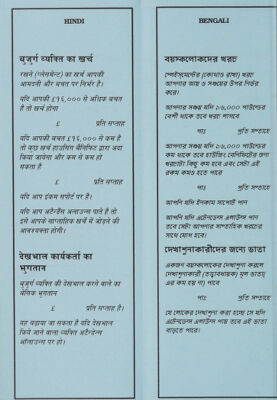 HINDI
बुजुर्ग व्यक्ति का खर्च
रखने (प्लेसमेन्ट) का खर्च आपकी
आमदनी और बचत पर निर्भर है।
यदि आपकी £१६,००० से अधिक बचत
है तो खर्च होगा
£ प्रति सप्ताह
यदि आपकी बचत £१६,००० से कम है
तो कुछ खर्चा हाउसिंग बैनिफिट द्वारा अदा
किया जायेगा और कम से कम हो
सकता है
£ प्रति सप्ताह
यदि आप इंकम सपोर्ट पर है।
यदि आप अटैण्डैंस अलाउन्स पाते है तो
इसे आपके साप्ताहिक खर्च में जोड़ने की
आवश्यकता होगी।
देखभाल कार्यकर्ता का
भुगतान
बुजुर्ग व्यक्ति की देखभाल करने वाले का
बेसिक भुगतान
£ प्रति सप्ताह है।
यह बढ़ाया जा सकता है यदि देखभाल
किये जाने वाला व्यक्ति अटैन्डैन्स
अलॉउन्स पर हो।
BENGALI
বয়স্কলোকদের খরচ
প্লেইসমেন্টের (কোথাও রাখা) খরচ
আপনার আয় ও সঞ্চয়ের উপর নির্ভর
করে।
আপনার সঞ্চয় যদি ১৬,০০০ পাউন্ডের
বেশী থাকে তবে খরচ লাগবে
পাঃ প্রতি সপ্তাহে
আপনার সঞ্চয় যদি ১৬,০০০ পাউন্ডের
কম থাকে তবে হাউজিং বেনিফিটের জন্য
খরচটা কিছু কম হবে এবং সেটা এই
রকম কমও হতে পারে
পাঃ প্রতি সপ্তাহে
আপনি যদি ইনকাম সাপোর্ট পান
আপনি যদি এটেনডেন্স এলাউন্স পান
তবে সেটা আপনার সাপ্তাহিক খরচের
সাথে যোগ হবে।
দেখাশুনাকারীদের জন্যে ভাতা
একজন বয়স্কলোকের দেখাশুনা করলে
দেখাশুনাকারী (তত্ত্বাবধায়ক) মূল ভাতা
এর কম হয় না) পাবে
পাঃ প্রতি সপ্তাহে
যে লোকের দেখাশুনা করা হচ্ছে সে যদি
এটেনডেন্স এলাউন্স পায় তবে এই ভাতা
বাড়তে পারে।